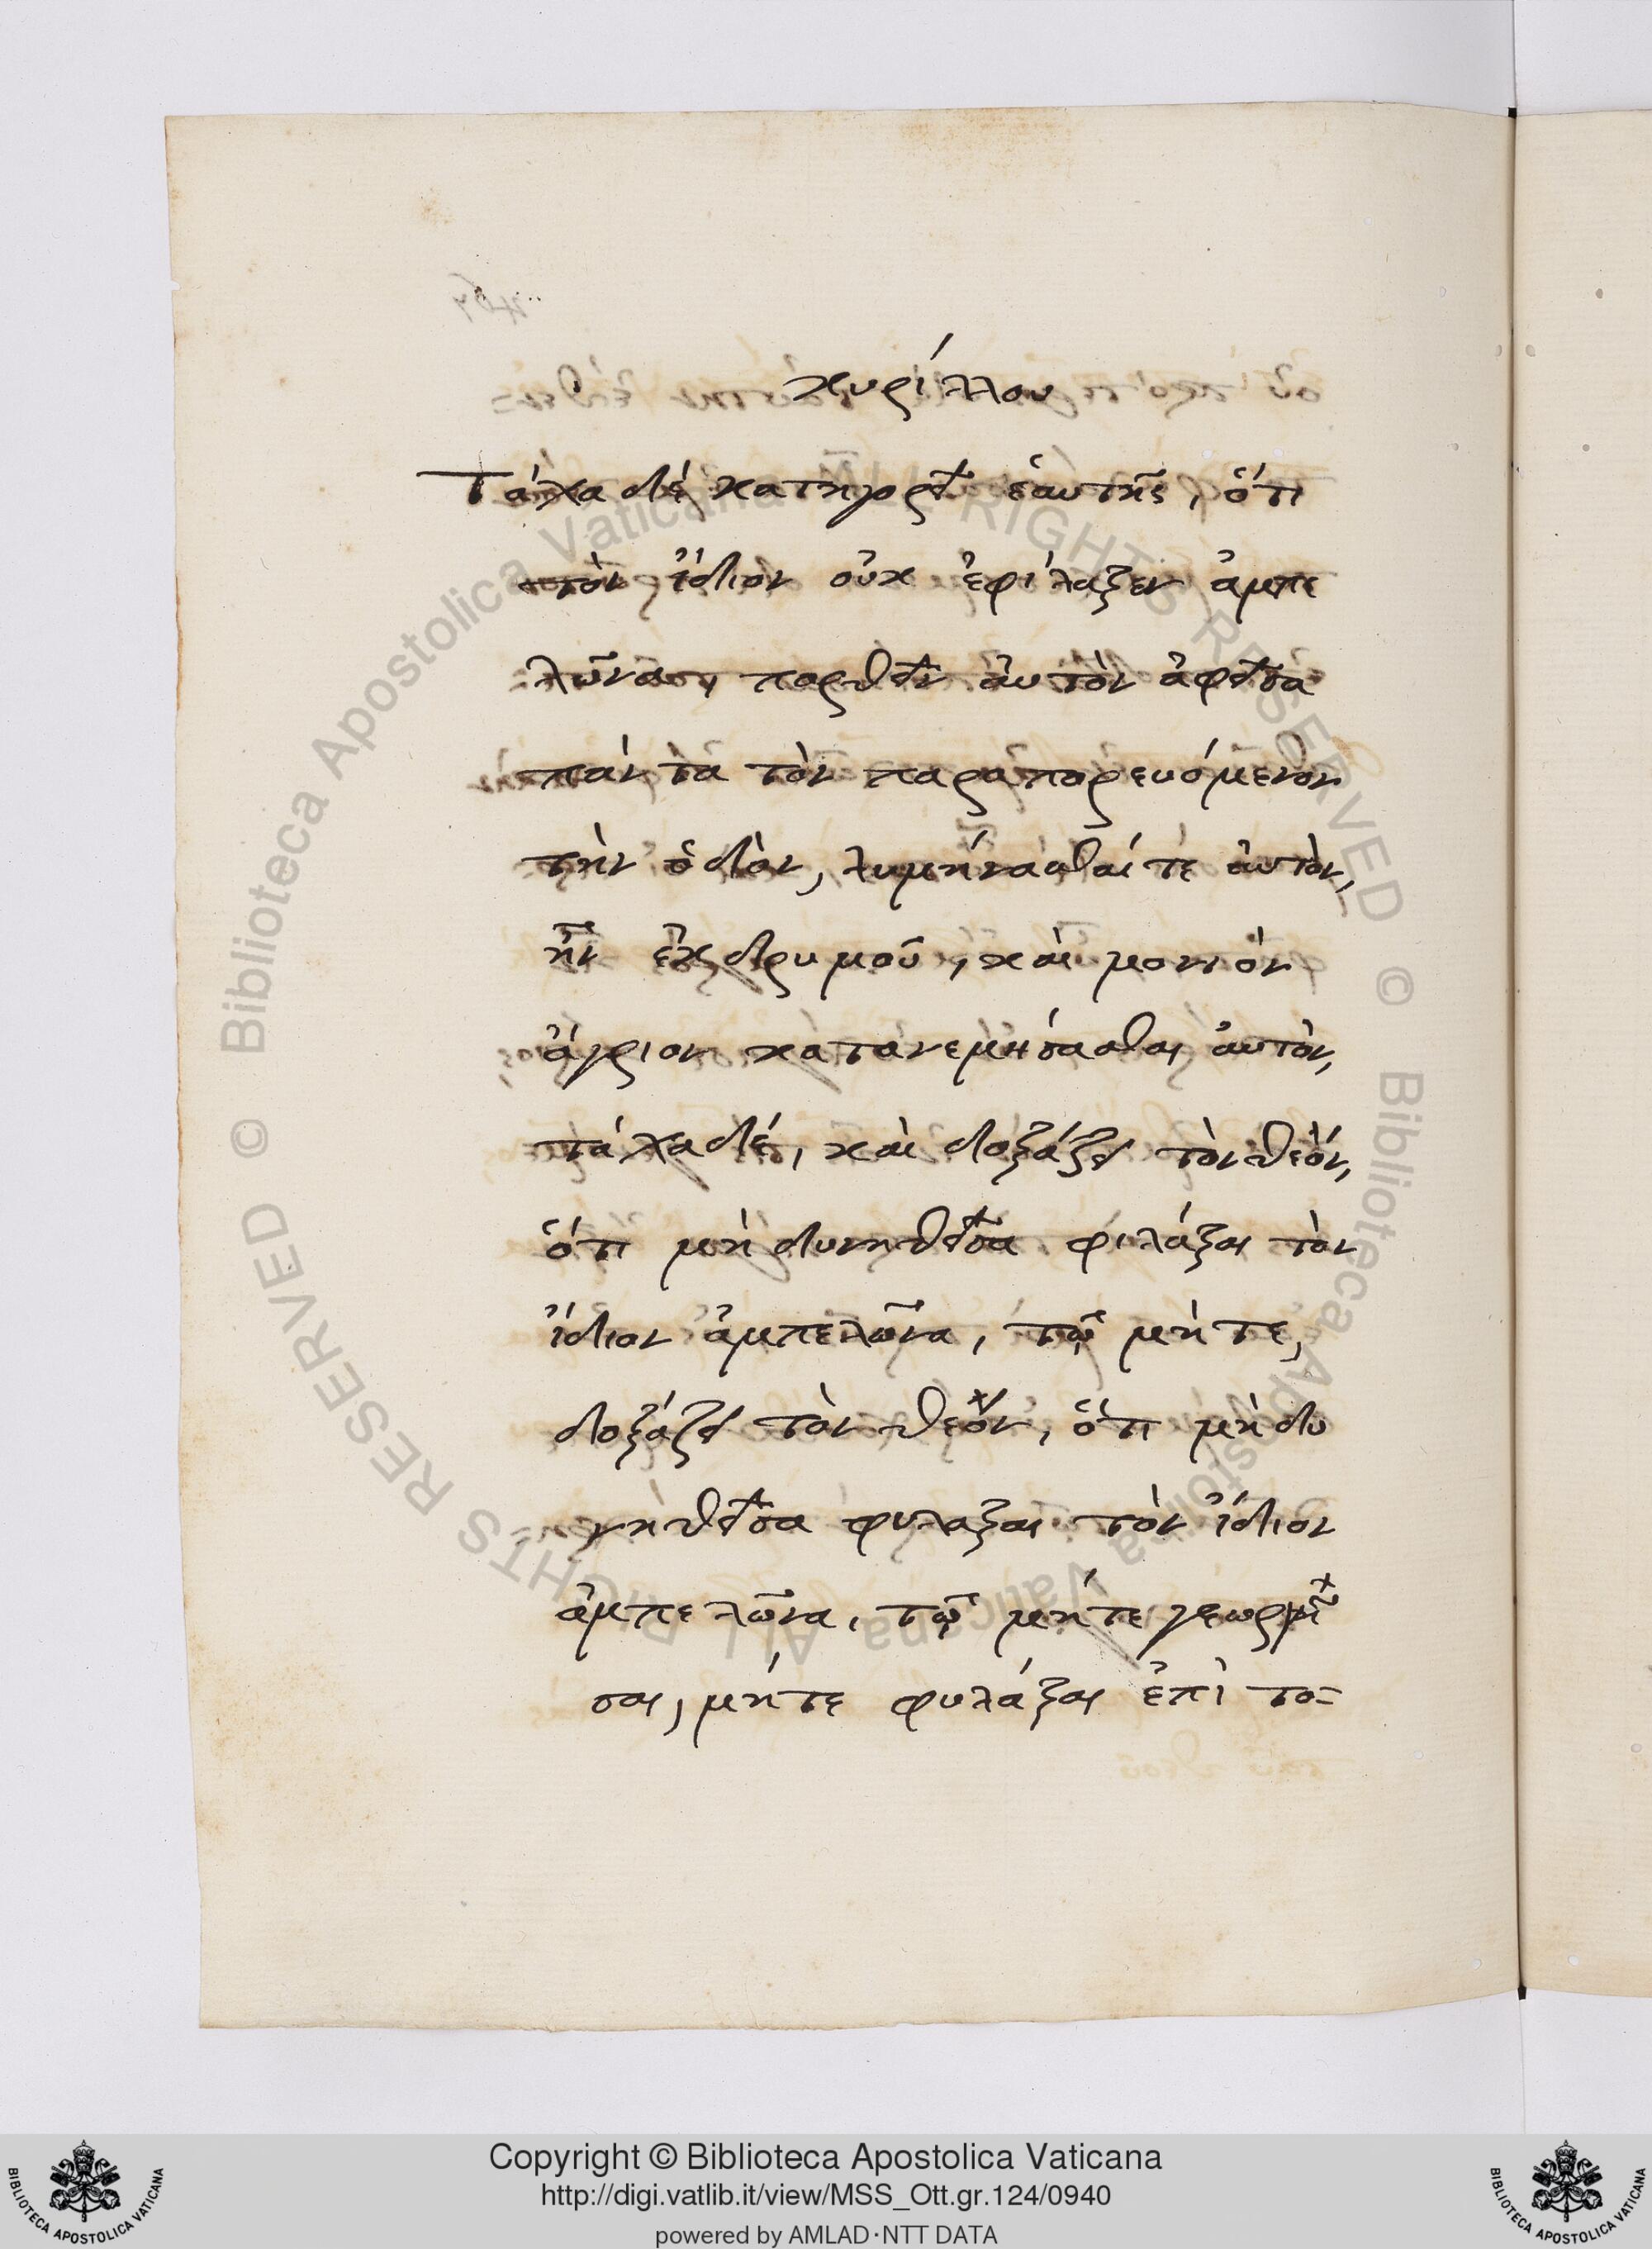 κυρίλλου
Τάχα δὲ κατηγορεῖ ἑαυτῆς, ὅτι
τὸν ἴδιον οὐκ ἐφίλαξεν ἀμπε
λῶνα, πορθεῖν αὐτὸν ἀφεῖσα
πάντα τὸν παραπορευόμενον
τὴν ὁδὸν, λυμήνασθαί τε αὐτὸν,
ἦν ἐκ δρυμοῦ, καὶ μονιὸν
ἄγριον κατανεμήσασθαι αὐτὸν,
τάχα δέ, καὶ δοξάζει τὸν θεόν,
ὅτι μὴ δυνηθεῖσα φιλάξαι τὸν
ἴδιον ἀμπελῶνα, τῷ μήτε,
δοξάζει τὸν θεὸν, ὅτι μὴ δυ
νηθεῖσα φυλαξαι τὸν ἴδιον
ἀμπελῶνα, τῷ μήτε γεωργῆ
σαι, μήτε φυλάξαι ἐπὶ το-
Copyright © Biblioteca Apostolica Vaticana
http://digi.vatlib.it/view/MSS_Ott.gr.124/0940
powered by AMLAD·NTT DATA
© Biblioteca Apostolica Vaticana ALL RIGHTS RESERVED
© Biblioteca Apostolica Vaticana ALL RIGHTS RESERVED
BIBLIOTECA APOSTOLICA VATICANA
BIBLIOTECA APOSTOLICA VATICANA